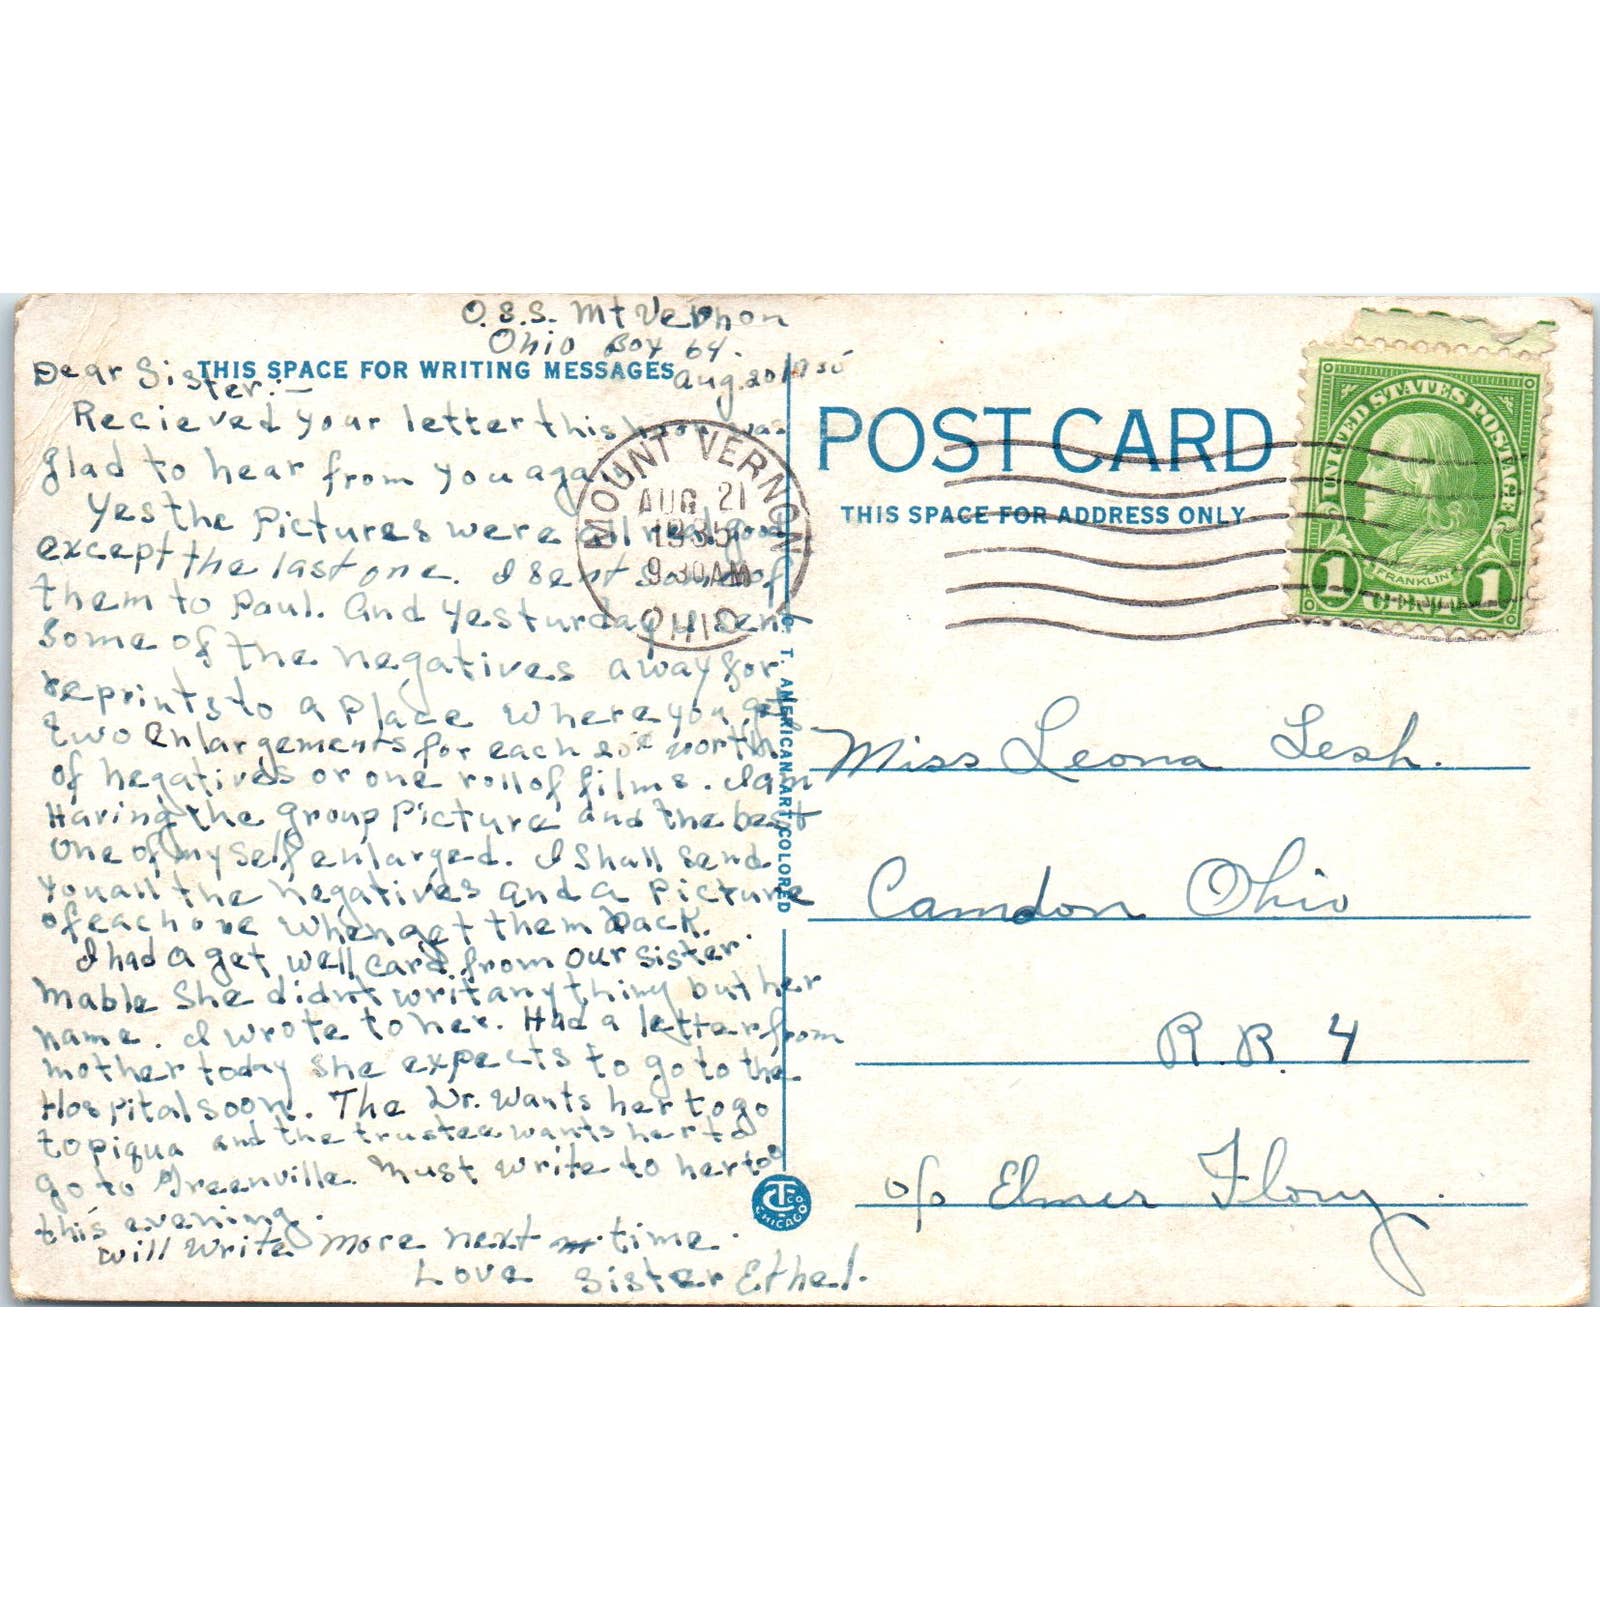 O.S.S. Mt Vernon
Ohio Box 64.
Aug. 20 1935
Dear Sister:-
THIS SPACE FOR WRITING MESSAGES
Recieved your letter this noon was
glad to hear from you again
Yes the Pictures were all real good
except the last one. I sent some of
them to Paul. And yesturday I sent
some of the negatives away for
reprints to a place where you get
two enlargements for each 20¢ worth
of negatives or one roll of films. I am
Having the group Picture and the best
one of my self enlarged. I shall send
you all the negatives and a Picture
of each one when get them back.
I had a get well card from our sister.
Mable She didnt writ anything but her
name. I wrote to her. Had a letter from
mother today she expects to go to the
Hospital soon. The Dr. wants her to go
to piqua and the trustee wants her to
go to Greenville. Must write to her too
this evening.
will write more next time.
Love Sister Ethel.
MOUNT VERNON
AUG 21
1935
9 30 AM
OHIO
C. T. AMERICAN ART COLORED
CT CO
CHICAGO
POST CARD
THIS SPACE FOR ADDRESS ONLY
UNITED STATES POSTAGE
FRANKLIN
1 CENT 1
Miss Leona Lesh.
Camdon Ohio
R.R. 4
c/o Elmer Flory.